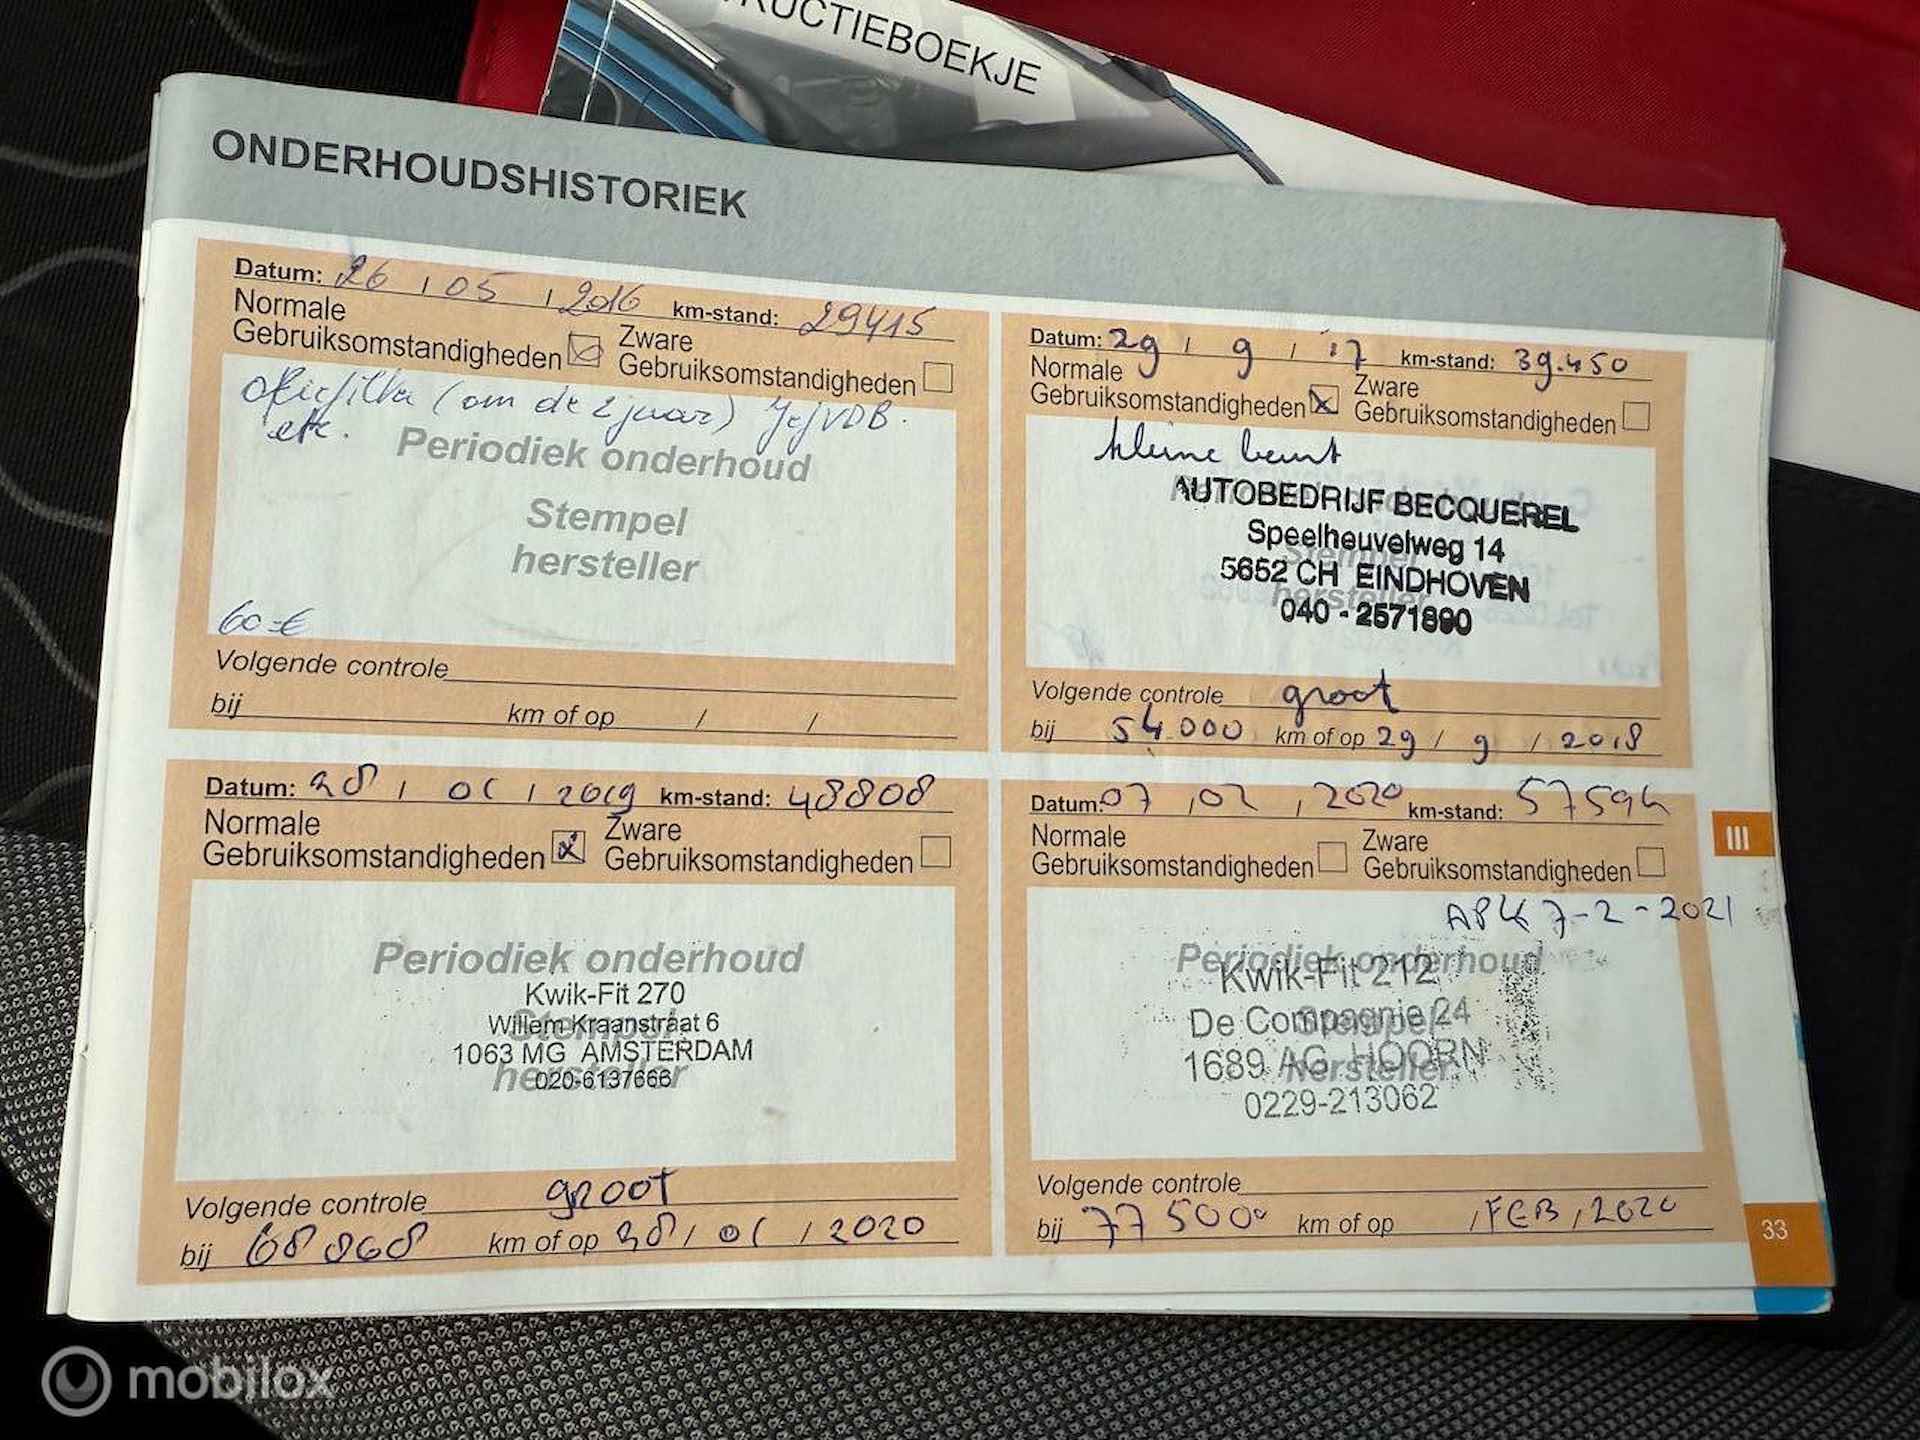 RUCTIEBOEKJE
ONDERHOUDSHISTORIEK
Datum: 26 / 05 / 2016 km-stand: 29415
Normale Gebruiksomstandigheden Zware Gebruiksomstandigheden
(om de 2 jaar)
etc.
Periodiek onderhoud
Stempel
hersteller
60 €
Volgende controle
bij km of op / /
Datum: 29 / 9 / 17 km-stand: 39.450
Normale Gebruiksomstandigheden x Zware Gebruiksomstandigheden
kleine beurt
AUTOBEDRIJF BECQUEREL
Speelheuvelweg 14
5652 CH EINDHOVEN
040 - 2571890
Volgende controle groot
bij 54.000 km of op 29 / 9 / 2018
Datum: 28 / 01 / 2019 km-stand: 48808
Normale Gebruiksomstandigheden x Zware Gebruiksomstandigheden
Periodiek onderhoud
Stempel
hersteller
Kwik-Fit 270
Willem Kraanstraat 6
1063 MG AMSTERDAM
020-6137666
Volgende controle groot
bij 68868 km of op 28 / 01 / 2020
Datum: 07 / 02 / 2020 km-stand: 57594
Normale Gebruiksomstandigheden Zware Gebruiksomstandigheden
APK 7-2-2021
Periodiek onderhoud
Stempel
hersteller
Kwik-Fit 212
De Compagnie 24
1689 AG HOORN
0229-213062
Volgende controle
bij 77500 km of op / FEB / 2020
III
33
mobilox